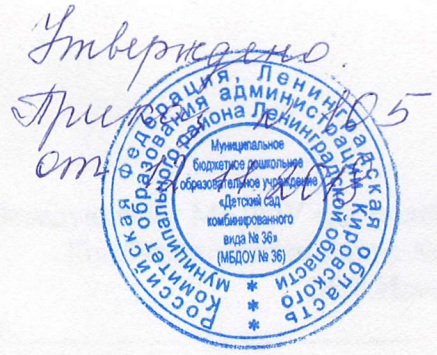 Утверждено.
Приказ 105
от
Российская Федерация, Ленинградская область
Комитет образования администрации Кировского
муниципального района Ленинградской области
Муниципальное
бюджетное дошкольное
образовательное учреждение
«Детский сад
комбинированного
вида № 36»
(МБДОУ № 36)
* * *